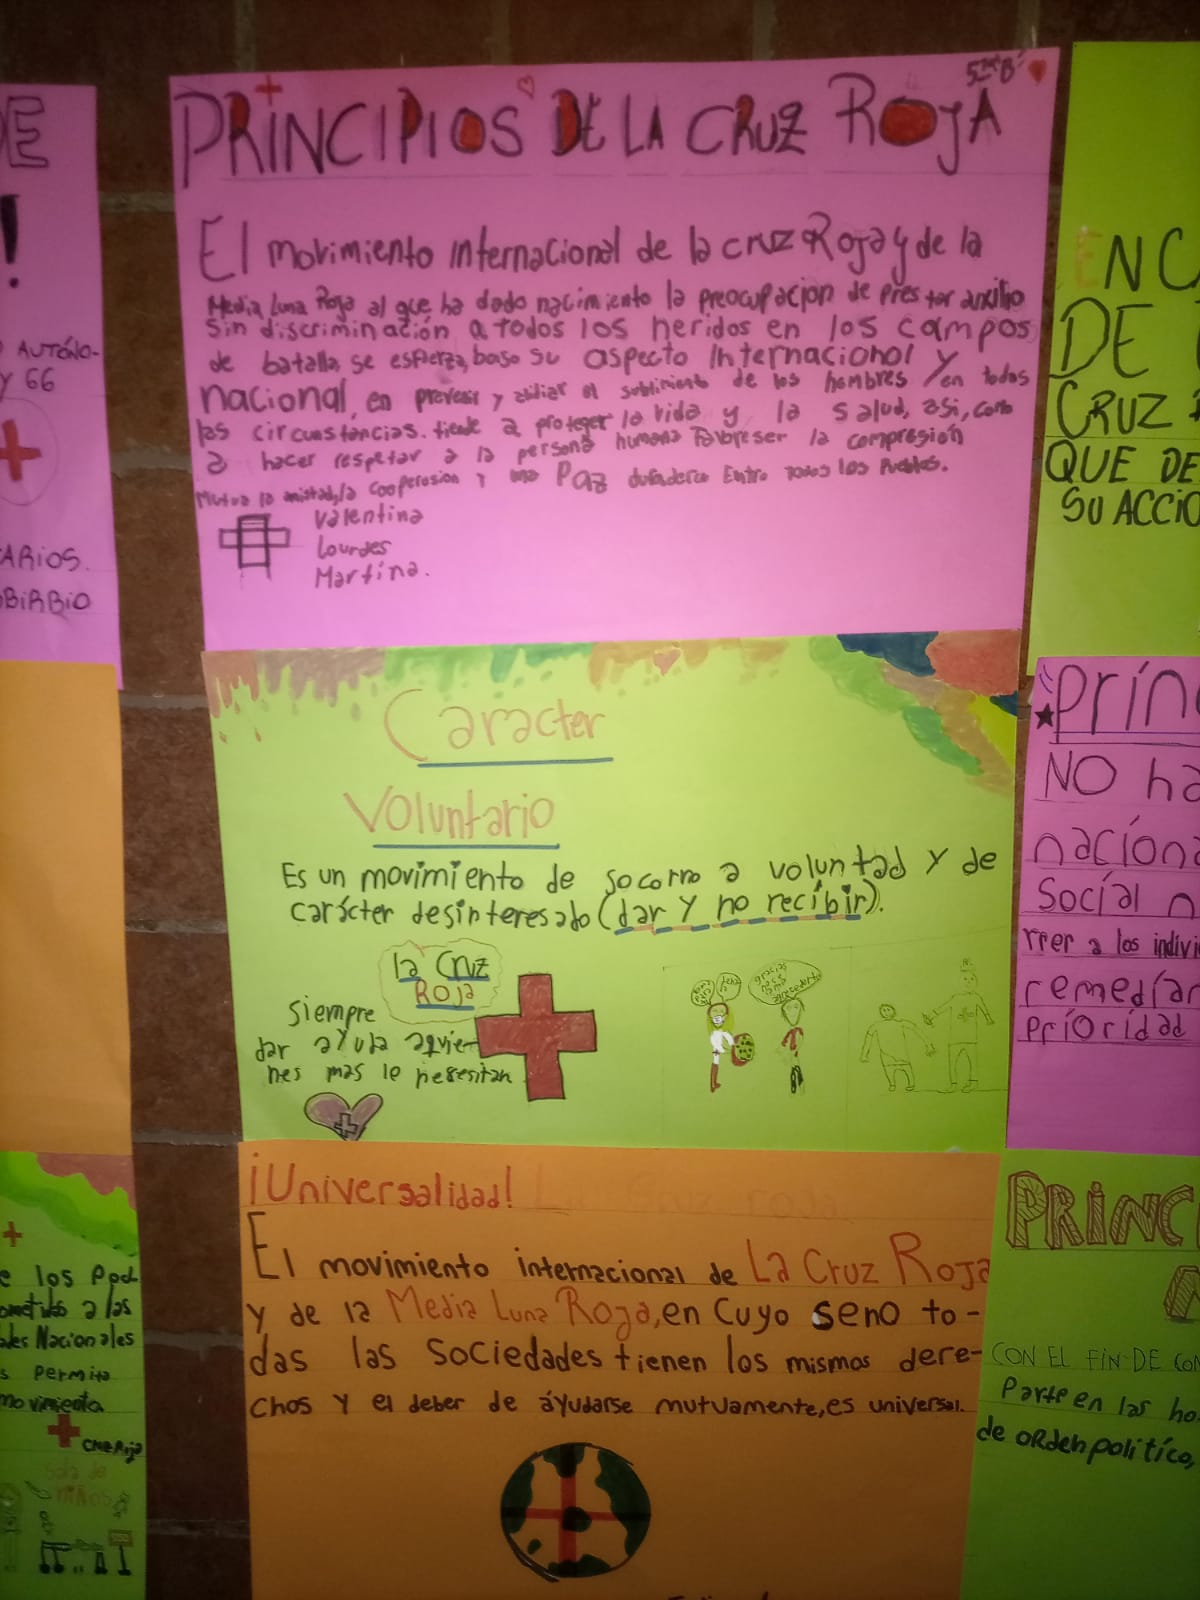 5 "B"
PRINCIPIOS DE LA CRUZ ROJA
El movimiento internacional de la cruz Roja y de la
Media Luna Roja al que ha dado nacimiento la preocupacion de prestar auxilio
sin discriminación a todos los heridos en los campos
de batalla, se esfuerza, baso su aspecto internacional y
nacional, en prevenir y de los hombres en todas
las circunstancias. tiende a proteger la vida y la salud, asi, como
a hacer respetar a la persona humana Faboreser la compresión
Mutua la amistad, la cooperasion y una Paz Entre todos los Pueblos.
Valentina
Lourdes
Martina.
Caracter
Voluntario
Es un movimiento de socorro a voluntad y de
carácter desinteresado (dar y no recibir).
la Cruz
ROJA
siempre
dar ayuda aquie-
nes mas le nesesitan
gracias
¡Universalidad!
El movimiento internacional de La Cruz Roja
y de la Media Luna Roja, en cuyo seno to-
das las sociedades tienen los mismos dere-
chos y el deber de áyudarse mutuamente, es universal.
DE
!
AUTÓNO-
Y 66
ARIOS.
OBIRBIO
e los pod
ometido a las
ades Nacionales
s permita
movimienta
CRUZ Roja
Sala de
niños
ENC
DE
CRUZ
QUE DE
SU ACCIO
Prin
NO ha
naciona
Social n
rrer a los indivi
remediar
prioridad
PRINC
CON EL FIN DE CON
Parte en las ho
de orden politíco,